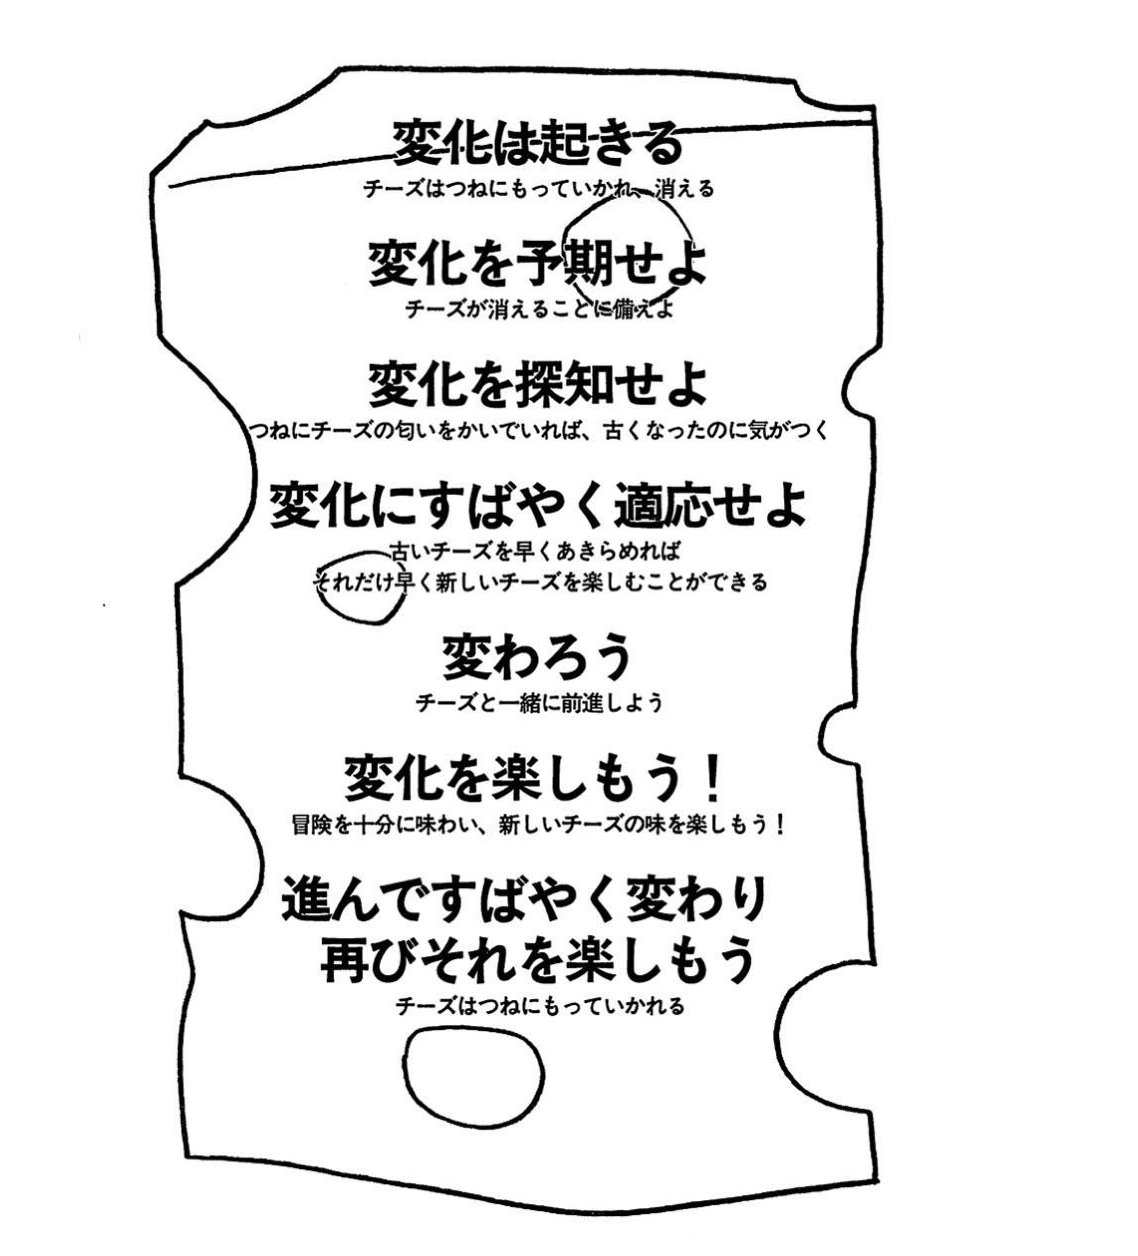 変化は起きる
チーズはつねにもっていかれ、消える
変化を予期せよ
チーズが消えることに備えよ
変化を探知せよ
つねにチーズの匂いをかいでいれば、古くなったのに気がつく
変化にすばやく適応せよ
古いチーズを早くあきらめれば
それだけ早く新しいチーズを楽しむことができる
変わろう
チーズと一緒に前進しよう
変化を楽しもう！
冒険を十分に味わい、新しいチーズの味を楽しもう！
進んですばやく変わり
再びそれを楽しもう
チーズはつねにもっていかれる